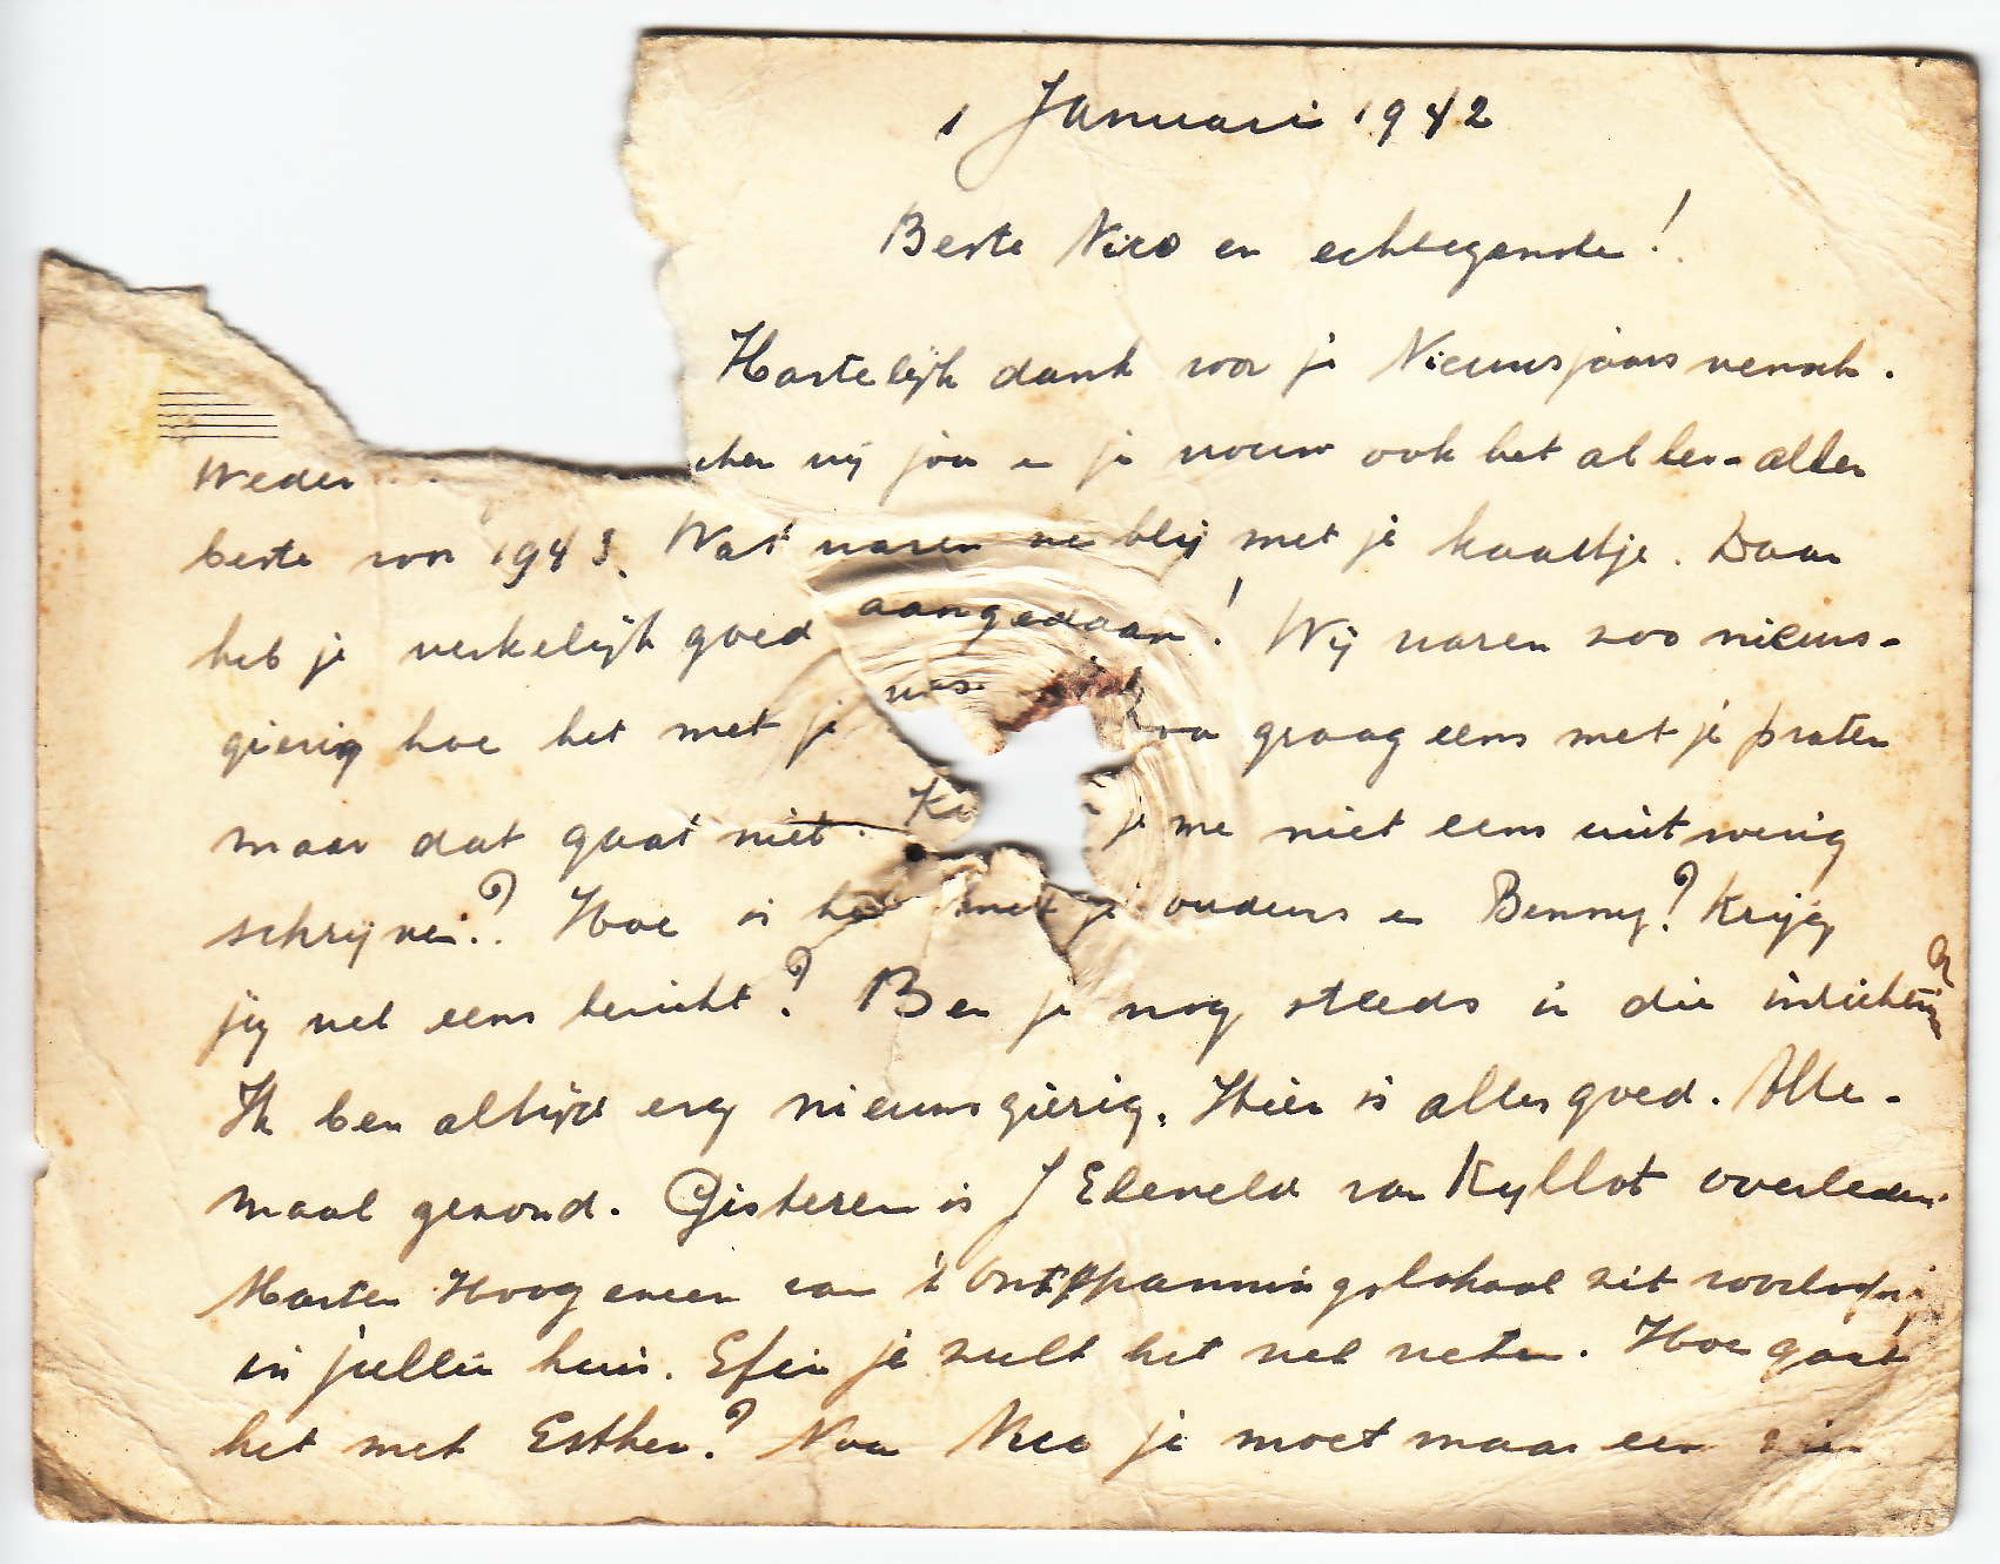 1 Januari 1942
Beste Nico en echtegenote!
Hartelijk dank voor je Nieuwsjaars wensch.
Weder chen wij jou en je vrouw ook het aller-aller
beste voor 1943. Wat waren we blij met je kaartje. Daar
heb je werkelijk goed aangedaan! Wij waren zoo nieuws-
gierig hoe het met je was. graag eens met je praten
maar dat gaat niet. je me niet eens uitvoerig
schrijven? Hoe is het met je ouders en Benny? Krijg
jij wel eens bericht? Ben je nog steeds in die inrichting?
Ik ben altijd erg nieuwsgierig. Hier is alles goed. Alle-
maal gezond. Gisteren is J Eleveld van Kyllot overleden.
Marten Hoogeveen van 't ontspanningslokaal zit voorloopig
in jullie huis. Efin je zult het wel weten. Hoe gaat
het met Esther? Nou Nico je moet maar een